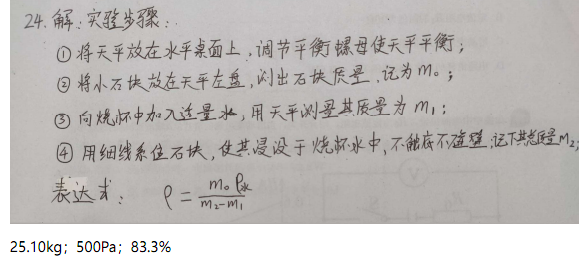 24. 解：实验步骤：
① 将天平放在水平桌面上，调节平衡螺母使天平平衡；
② 将小石块放在天平左盘，测出石块质量，记为m₀；
③ 向烧杯中加入适量水，用天平测量其质量为 m₁；
④ 用细线系住石块，使其浸没于烧杯水中，不触底不碰壁，记下其总质量m₂；
表达式： ρ = m₀ρ水/(m₂-m₁)
25.10kg；500Pa；83.3%